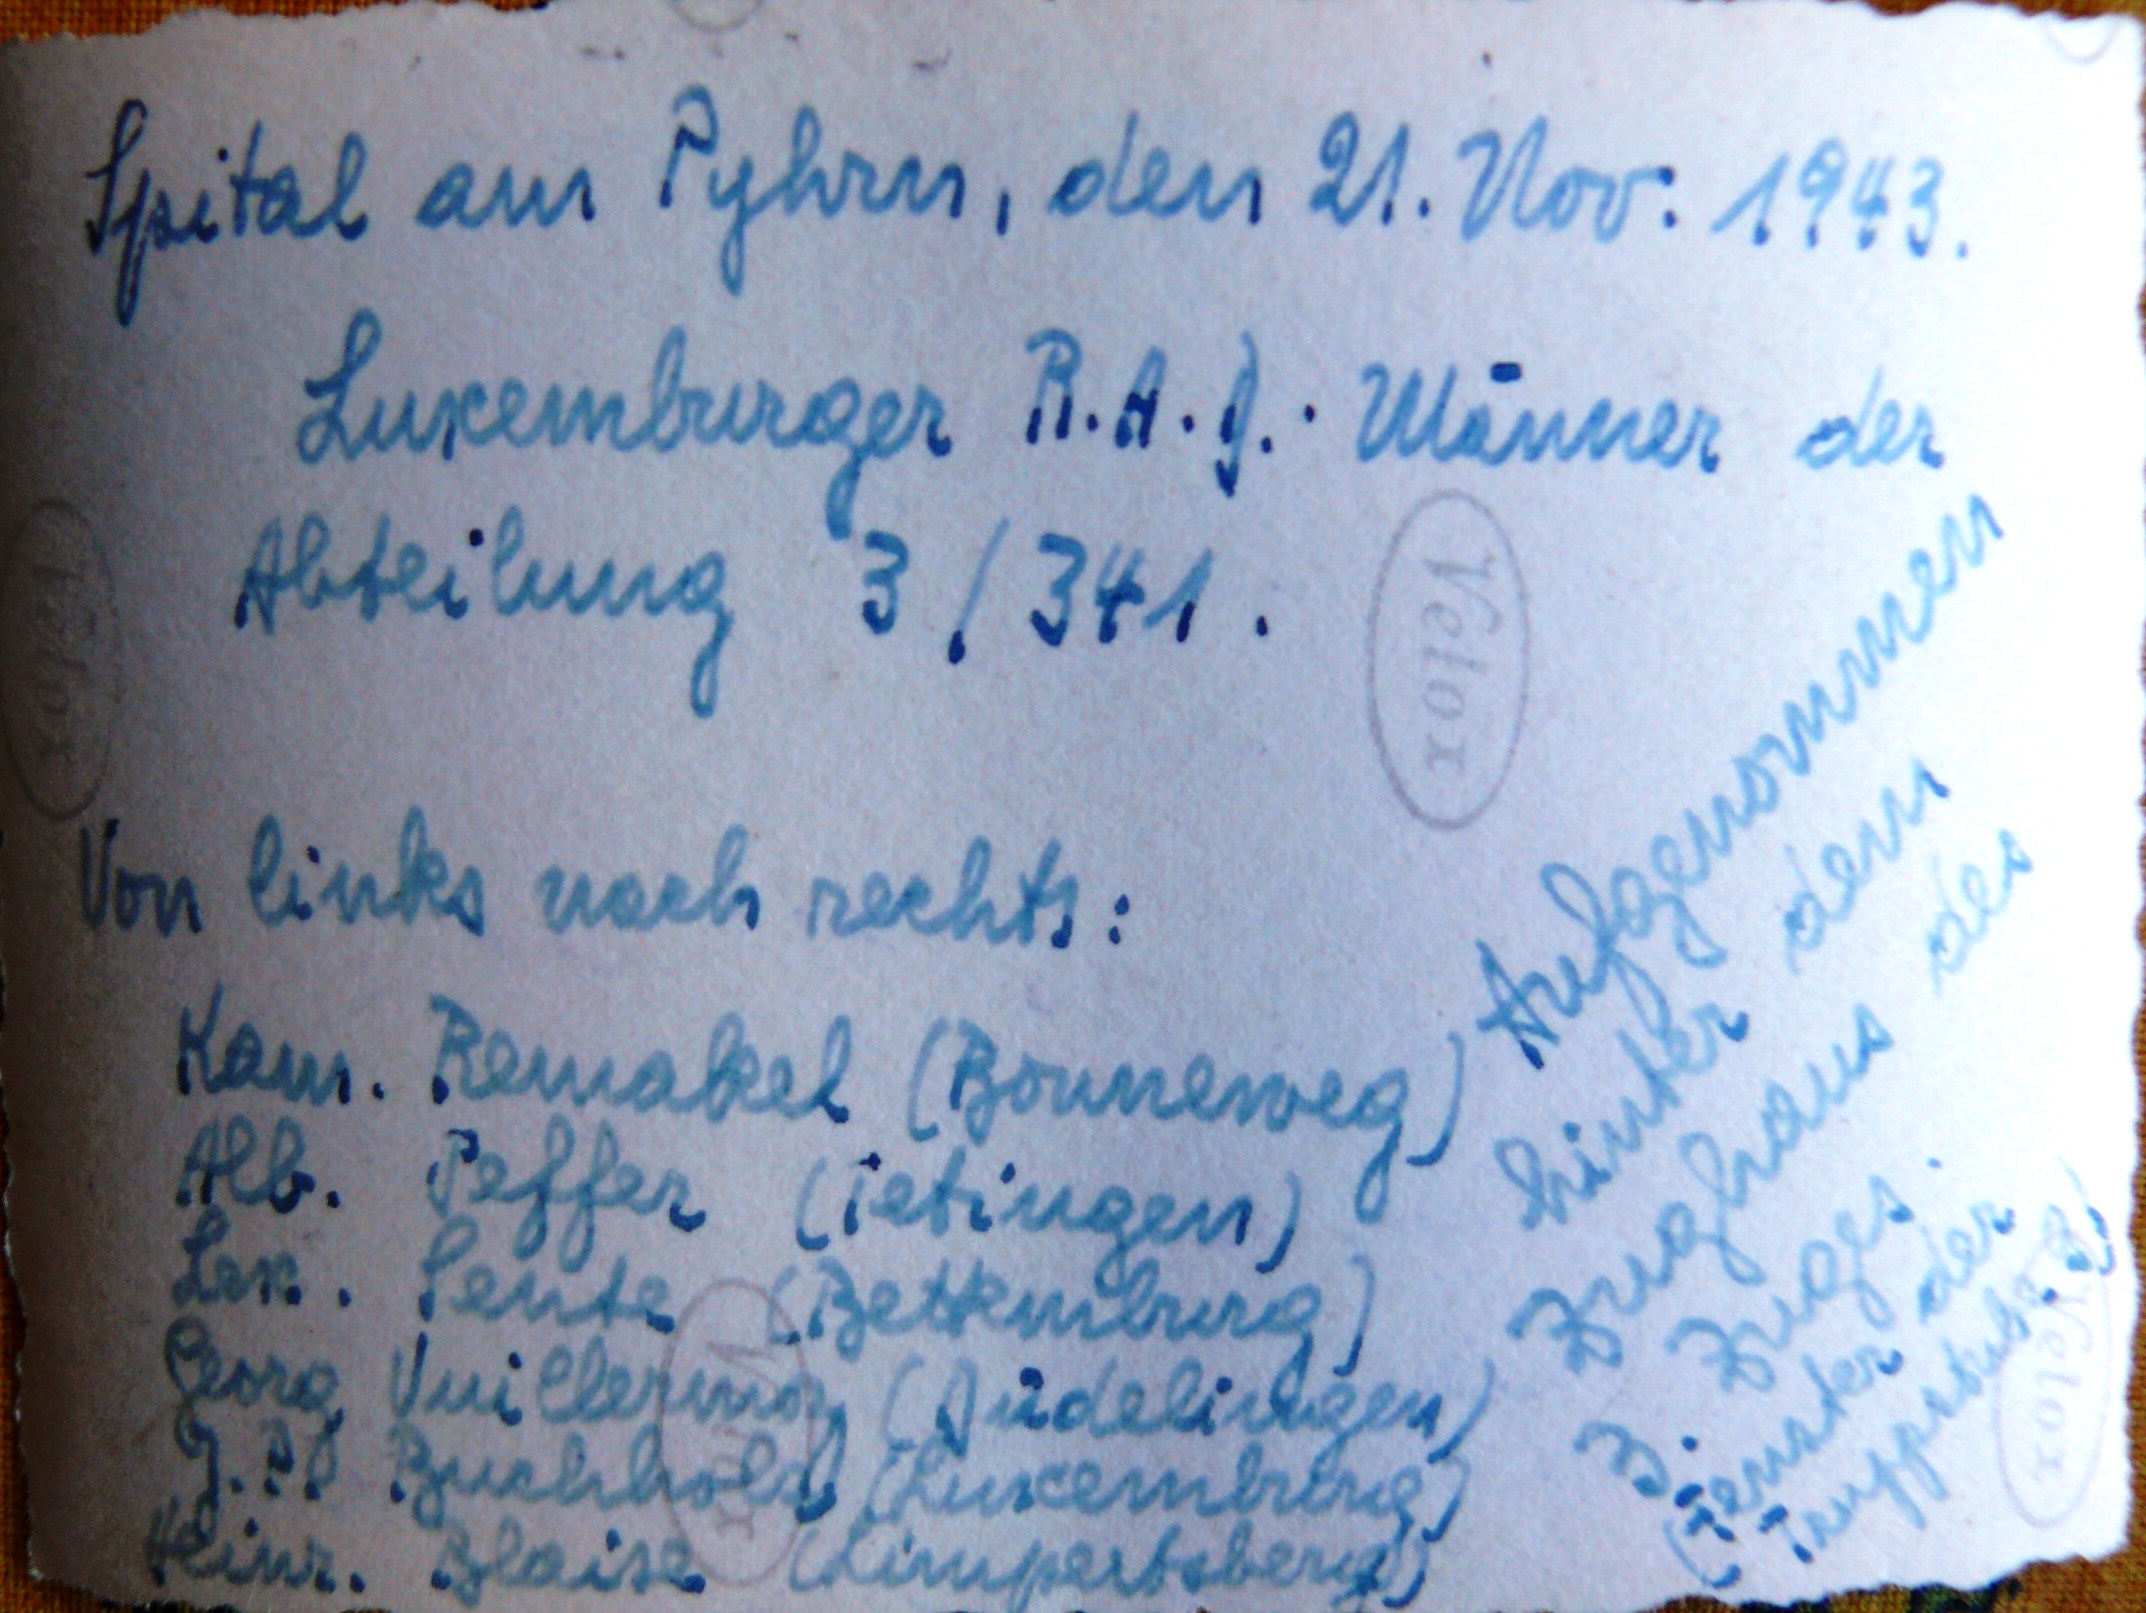 Spital am Pyhrn, den 21. Nov. 1943.
Luxemburger R.A.D. Männer der
Abteilung 3/341.
Velox
Velox
Von links nach rechts:
Kam. Remakel (Bonneweg)
Alb. Peffer (Tetingen)
Lex. Sente (Bettemburg)
Georg Vuillermoz (Düdelingen)
J.P. Buchholz (Luxemburg)
Heinr. Blaise (Limpertsberg)
Aufgenommen
hinter dem
Zughaus des
3. Zuges.
(Fenster der
Truppstub.
Velox